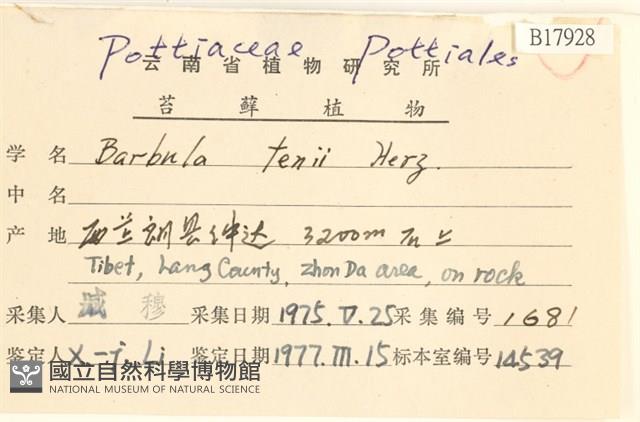 B17928
Pottiaceae Pottiales
云南省植物研究所
苔藓植物
学名 Barbula tenii Herz.
中名
产地 西兰朗县仲达 3200m 石上
Tibet, Lang County, zhon Da area, on rock
采集人 臧穆 采集日期 1975.V.25 采集编号 1681
鉴定人 X-j. Li 鉴定日期 1977.III.15 标本室编号 14539
國立自然科學博物館
NATIONAL MUSEUM OF NATURAL SCIENCE